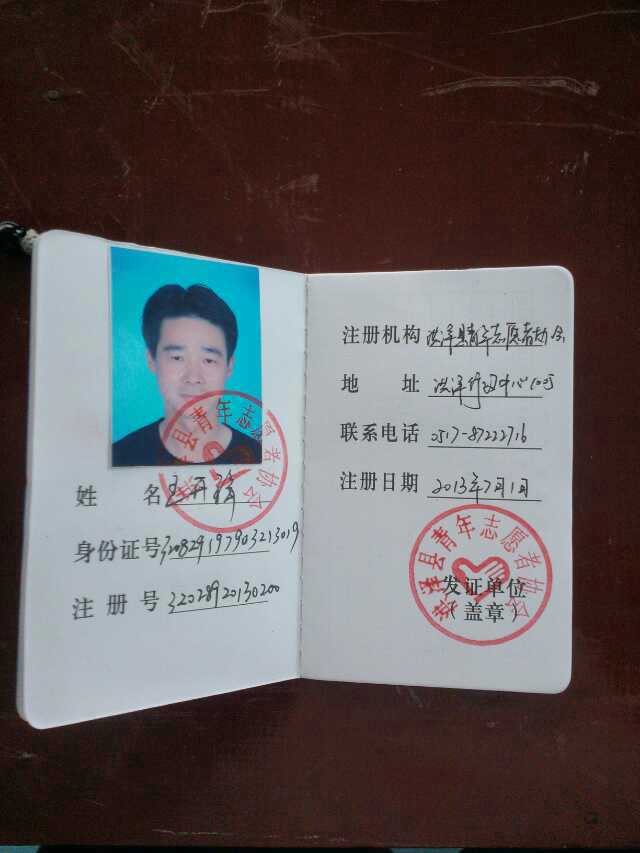 姓 名 王
身份证号 320829197903213019
注 册 号 32028920130200
洪泽县青年志愿者协会
注册机构 洪泽县青年志愿者协会
地 址 洪泽行政中心
联系电话 0517-87222716
注册日期 2013年7月1日
洪泽县青年志愿者协会
发证单位
（盖章）